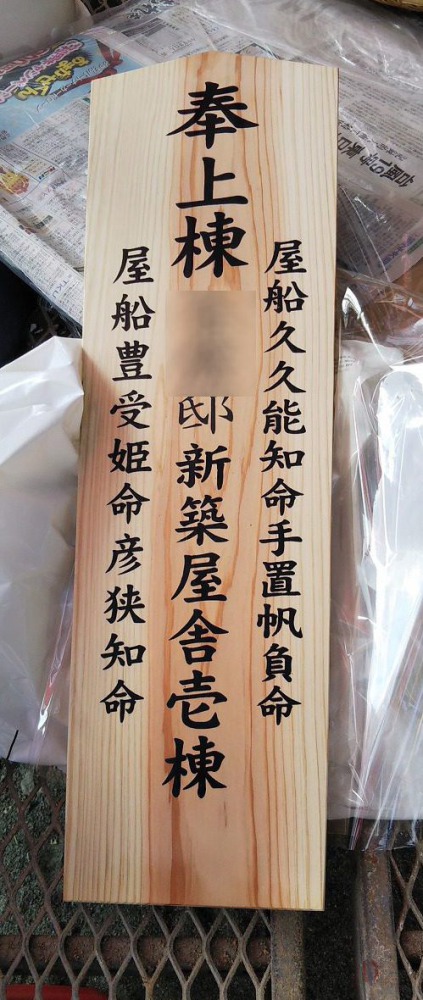 屋船久久能知命手置帆負命
奉上棟
邸新築屋舎壱棟
屋船豊受姫命彦狭知命
台風19号